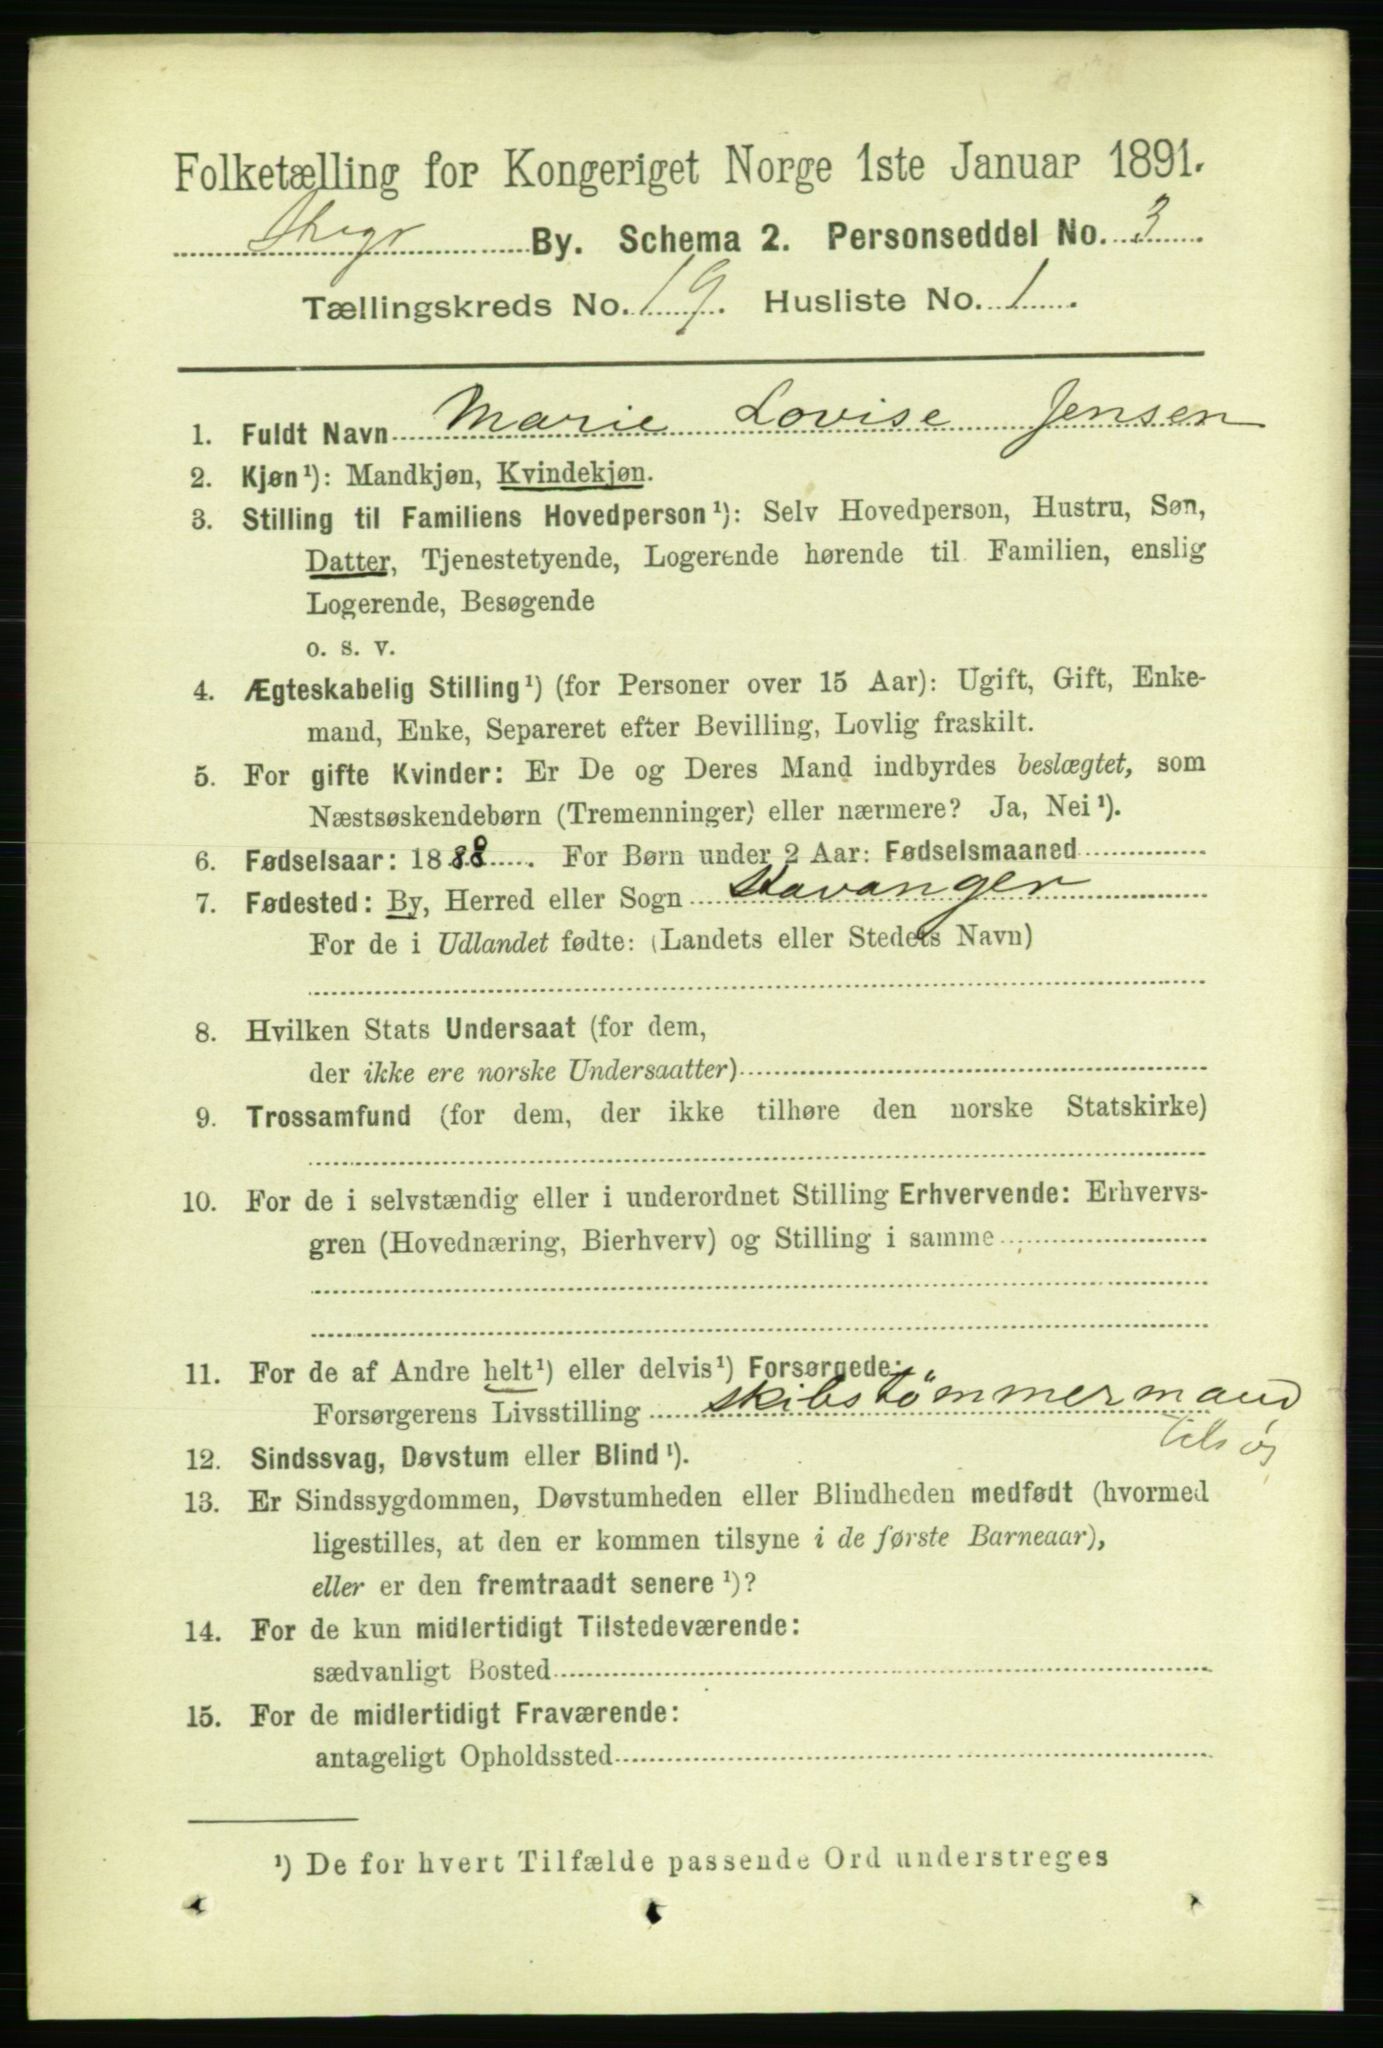 Folketælling for Kongeriget Norge 1ste Januar 1891.
By. Schema 2. Personseddel No. 3
Tællingskreds No. 19. Husliste No. 1.
1. Fuldt Navn Marie Lovise Jensen
2. Kjøn¹): Mandkjøn, Kvindekjøn.
3. Stilling til Familiens Hovedperson¹): Selv Hovedperson, Hustru, Søn,
Datter, Tjenestetyende, Logerende hørende til Familien, enslig
Logerende, Besøgende
o. s. v.
4. Ægteskabelig Stilling¹) (for Personer over 15 Aar): Ugift, Gift, Enke-
mand, Enke, Separeret efter Bevilling, Lovlig fraskilt.
5. For gifte Kvinder: Er De og Deres Mand indbyrdes beslægtet, som
Næstsøskendebørn (Tremenninger) eller nærmere? Ja, Nei¹).
6. Fødselsaar: 1888. For Børn under 2 Aar: Fødselsmaaned
7. Fødested: By, Herred eller Sogn Stavanger
For de i Udlandet fødte: (Landets eller Stedets Navn)
8. Hvilken Stats Undersaat (for dem,
der ikke ere norske Undersaatter)
9. Trossamfund (for dem, der ikke tilhøre den norske Statskirke)
10. For de i selvstændig eller i underordnet Stilling Erhvervende: Erhvervs-
gren (Hovednæring, Bierhverv) og Stilling i samme
11. For de af Andre helt¹) eller delvis¹) Forsørgede:
Forsørgerens Livsstilling skibstømmermand
tilsøs
12. Sindssvag, Døvstum eller Blind¹).
13. Er Sindssygdommen, Døvstumheden eller Blindheden medfødt (hvormed
ligestilles, at den er kommen tilsyne i de første Barneaar),
eller er den fremtraadt senere¹)?
14. For de kun midlertidigt Tilstedeværende:
sædvanligt Bosted
15. For de midlertidigt Fraværende:
antageligt Opholdssted
¹) De for hvert Tilfælde passende Ord understreges